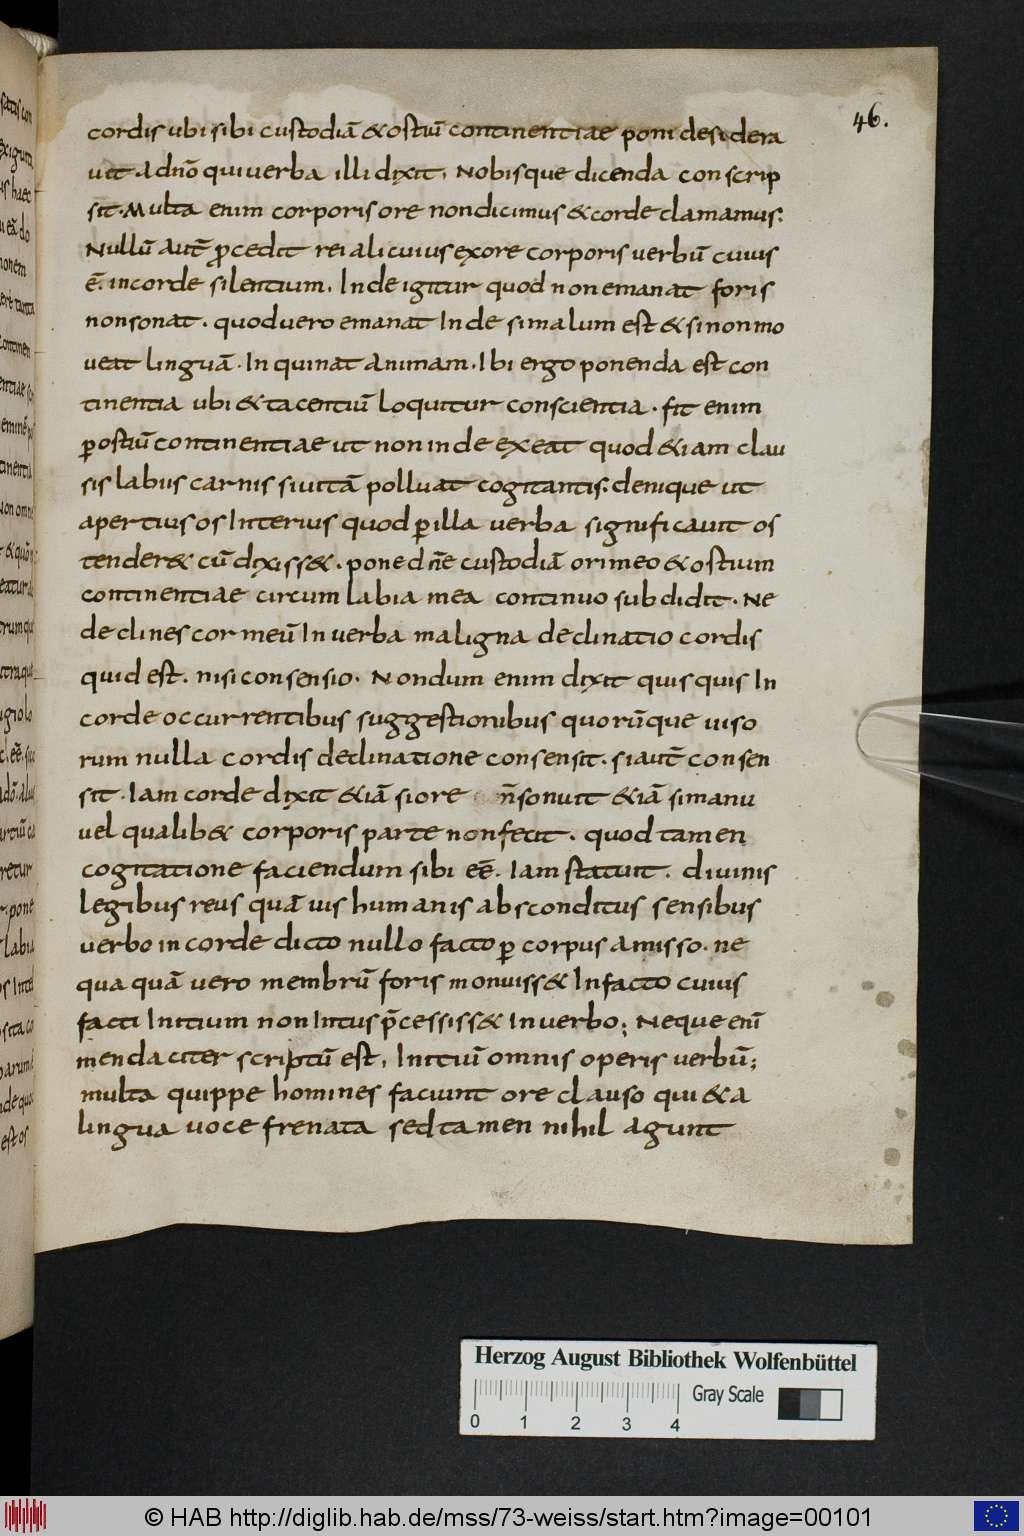 46.
cordis ubi sibi custodiā & ostiū continentiae poni desidera
uit. Ad dn̄o qui uerba illi dixit, Nobisque dicenda conscrip
sit. Multa enim corporis ore non dicimus & corde clamamus;
Nullū autē ꝓcedit rei alicuius ex ore corporis uerbū cuius
ē. in corde silentium. Inde igitur quod non emanat foris
non sonat. quod uero emanat Inde si malum est & si non mo
ueat linguā. Inquinat animam. Ibi ergo ponenda est con
tinentia ubi & tacentiū loquitur conscientia. fit enim
ꝑ ostiū continentiae ut non inde exeat quod &iam clau
sis labiis carnis si uitā polluat cogitantis. denique ut
apertius os Interius quod ꝑ illa uerba significauit os
tender& cū dixiss&. pone dn̄e custodiā ori meo & ostium
continentiae circum labia mea continuo subdidit. Ne
declines cor meū In uerba maligna declinatio cordis
quid est. nisi consensio. Nondum enim dixit quisquis In
corde occurrentibus suggestionibus quorūque uiso
rum nulla cordis declinatione consensit. si autē consen
sit. Iam corde dixit &iā si ore n̄ sonuit &iā si manu
uel qualib& corporis parte non fecit. quod tamen
cogitatione faciendum sibi eē. Iam statuit. diuinis
legibus reus quā uis humanis absconditus sensibus
uerbo in corde dicto nullo facto ꝑ corpus amisso. ne
qua quā uero membrū foris mouiss& In facto cuius
facti Initium non Intus p̄cessiss& In uerbo; Neque enī
mendaciter scriptū est, Initiū omnis operis uerbū;
multa quippe homines faciunt ore clauso qui&a
lingua uoce frenata sed tamen nihil agunt
Herzog August Bibliothek Wolfenbüttel
0 1 2 3 4 Gray Scale
© HAB http://diglib.hab.de/mss/73-weiss/start.htm?image=00101